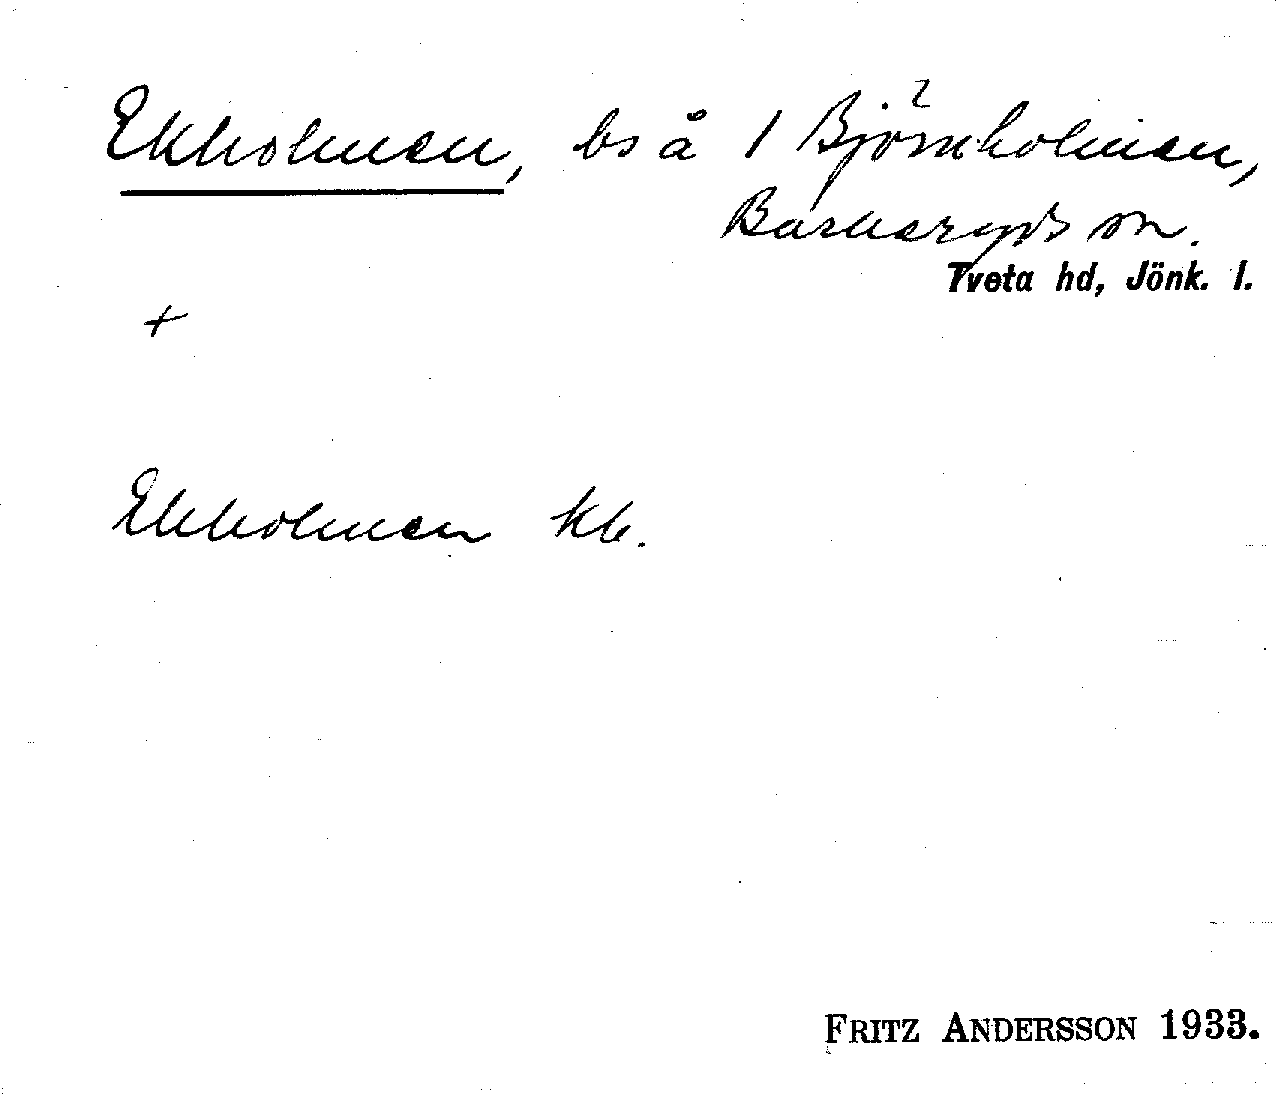 Ekholmen, bs å 1 Björnholmen,
Barkeryds sn.
Tveta hd, Jönk. l.
+
Ekholmen kb.
FRITZ ANDERSSON 1933.